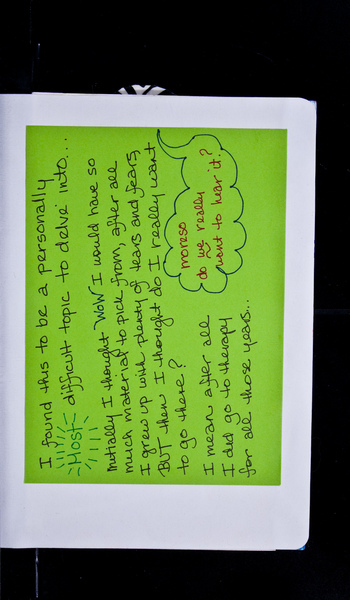 I found this to be a personally
Most difficult topic to delve into...
Initially I thought "WOW" I would have so
much material to pick from, after all
I grew up with plenty of tears and fears,
BUT then I thought do I really want
to go there?
moreso
do we really
want to hear it?
I mean after all
I did go to therapy
for all those years...